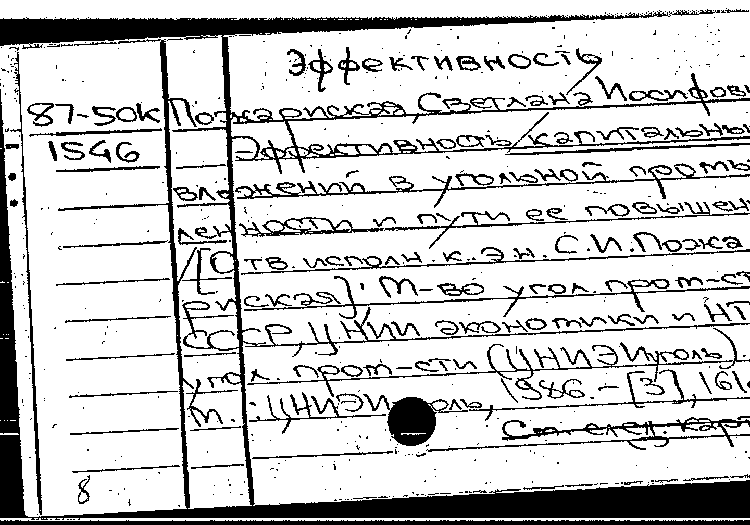 Эффективность
87-50к Пожариская, Светлана Иосифовн
1546 Эффективность капитальны
вложений в угольной промы
ленности и пути ее повышен
/[Отв. исполн. к.э.н. С.И. Пожа
риская]; М-во угол. пром-ст
СССР, ЦНИИ экономики и НТ
угол. пром-сти (ЦНИЭИуголь).
М.: ЦНИЭИуголь, 1986. - [3], 161
См. след. карт
8